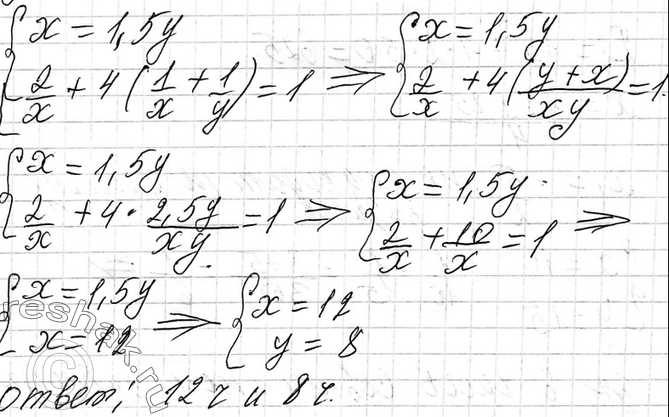 { x = 1,5y
{ 2/x + 4 (1/x + 1/y) = 1 ⇒ { x = 1,5y
{ 2/x + 4 (y + x)/(xy) = 1.
{ x = 1,5y
{ 2/x + 4 · 2,5y/(xy) = 1 ⇒ { x = 1,5y
{ 2/x + 10/x = 1 ⇒
{ x = 1,5y
{ x = 12 ⇒ { x = 12
{ y = 8
ответ; 12 ч и 8 ч.
reshak.ru